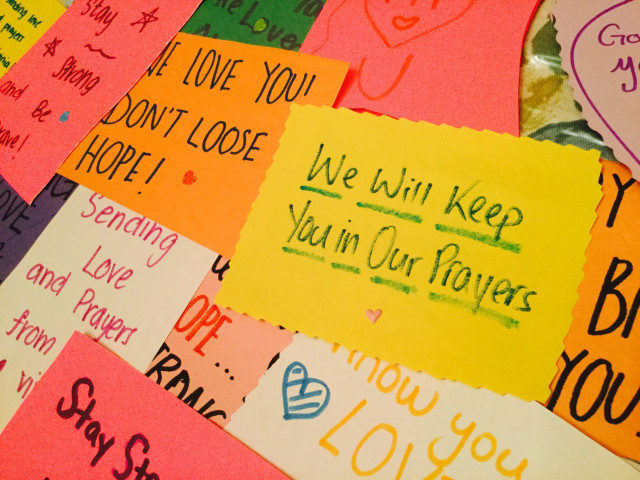 Sending love
prayers
Stay
Strong
and Be
Brave!
We Love
WE LOVE YOU!
DON'T LOOSE
HOPE!
We Will Keep
You in Our Prayers
Sending
Love
and Prayers
from
LOVE
OPE...
know you
LOV
Stay
BI
YOU